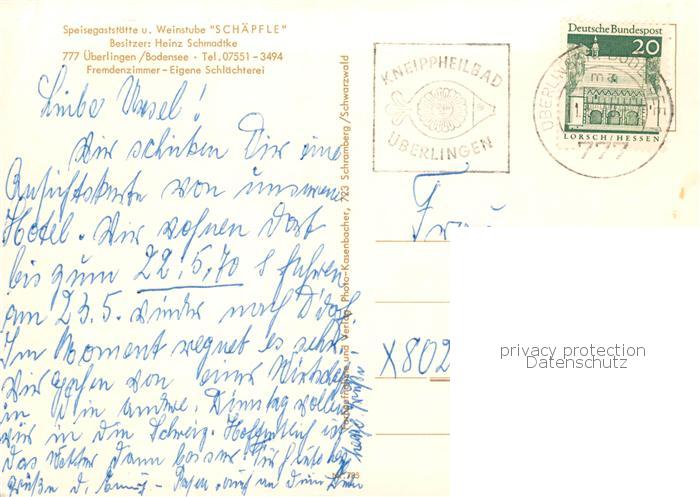 Speisegaststätte u. Weinstube "SCHÄPFLE"
Besitzer: Heinz Schmadtke
777 Überlingen/Bodensee - Tel. 07551-3494
Fremdenzimmer - Eigene Schlächterei
Liebe Ursel!
Wir schicken Dir eine
Ansichtskarte von unserem
Hotel. Wir wohnen dort
bis zum 22.5.70 & fahren
am 23.5. wieder nach D'dorf.
Im Moment regnet es sehr.
Wir gehen von einer Wirtschaft
in die andre. Dienstag wollen
wir in die Schweiz. Hoffentlich ist
das Wetter dann besser. Für heute
Grüße d.
auch an Deinen
Farbaufnahme und Verlag: Photo-Kasenbacher, 723 Schramberg/Schwarzwald
KNEIPPHEILBAD
ÜBERLINGEN
Deutsche Bundespost
20
LORSCH/HESSEN
ÜBERLINGEN
777
Frau
X802
privacy protection
Datenschutz